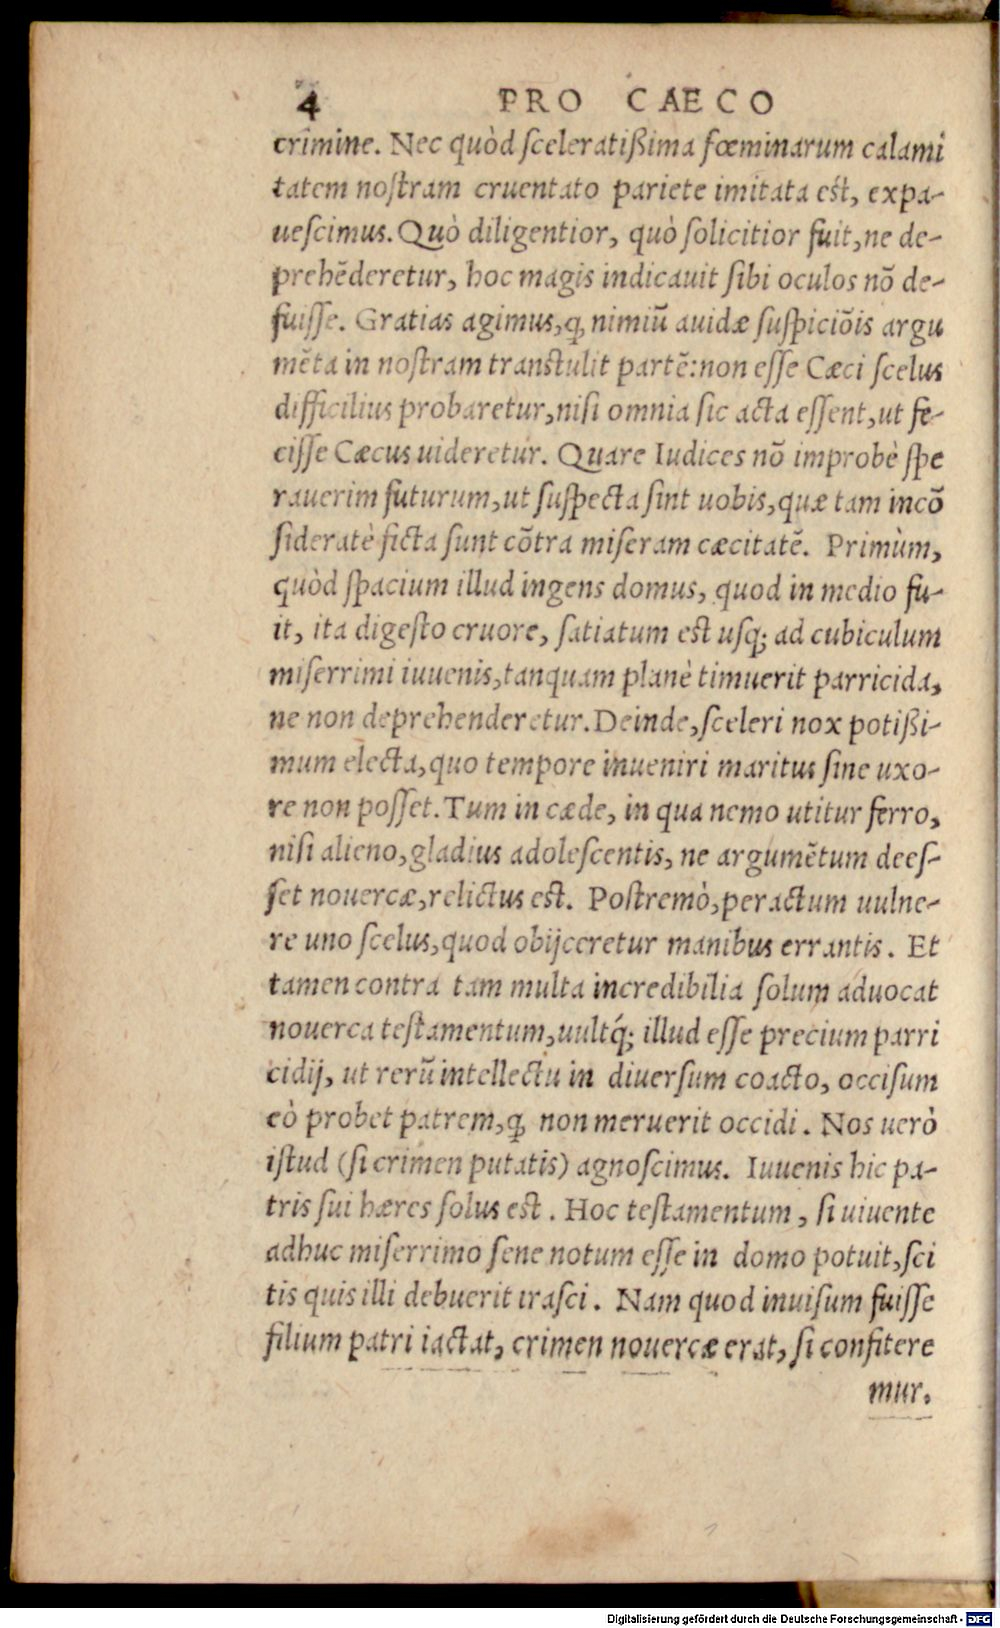 4 PRO CAECO
crimine. Nec quòd sceleratißima fœminarum calami
tatem nostram cruentato pariete imitata est, expa-
uescimus. Quò diligentior, quò solicitior fuit, ne de-
prehēderetur, hoc magis indicauit sibi oculos nō de-
fuisse. Gratias agimus, ꝙ nimiū auidæ suspiciōis argu
mēta in nostram transtulit partē: non esse Cæci scelus
difficilius probaretur, nisi omnia sic acta essent, ut fe-
cisse Cæcus uideretur. Quare Iudices nō improbè spe
rauerim futurum, ut suspecta sint uobis, quæ tam incō
sideratè ficta sunt cōtra miseram cæcitatē. Primùm,
quòd spacium illud ingens domus, quod in medio fu-
it, ita digesto cruore, satiatum est usq; ad cubiculum
miserrimi iuuenis, tanquam planè timuerit parricida,
ne non deprehenderetur. Deinde, sceleri nox potißi-
mum electa, quo tempore inueniri maritus sine uxo-
re non posset. Tum in cæde, in qua nemo utitur ferro,
nisi alieno, gladius adolescentis, ne argumētum dees-
set nouercæ, relictus est. Postremò, peractum uulne-
re uno scelus, quod obijceretur manibus errantis. Et
tamen contra tam multa incredibilia solum aduocat
nouerca testamentum, uultq́; illud esse precium parri
cidij, ut rerū intellectu in diuersum coacto, occisum
eò probet patrem, ꝙ non meruerit occidi. Nos uerò
istud (si crimen putatis) agnoscimus. Iuuenis hic pa-
tris sui hæres solus est. Hoc testamentum, si uiuente
adhuc miserrimo sene notum esse in domo potuit, sci
tis quis illi debuerit irasci. Nam quod inuisum fuisse
filium patri iactat, crimen nouercæ erat, si confitere
mur.
Digitalisierung gefördert durch die Deutsche Forschungsgemeinschaft - DFG